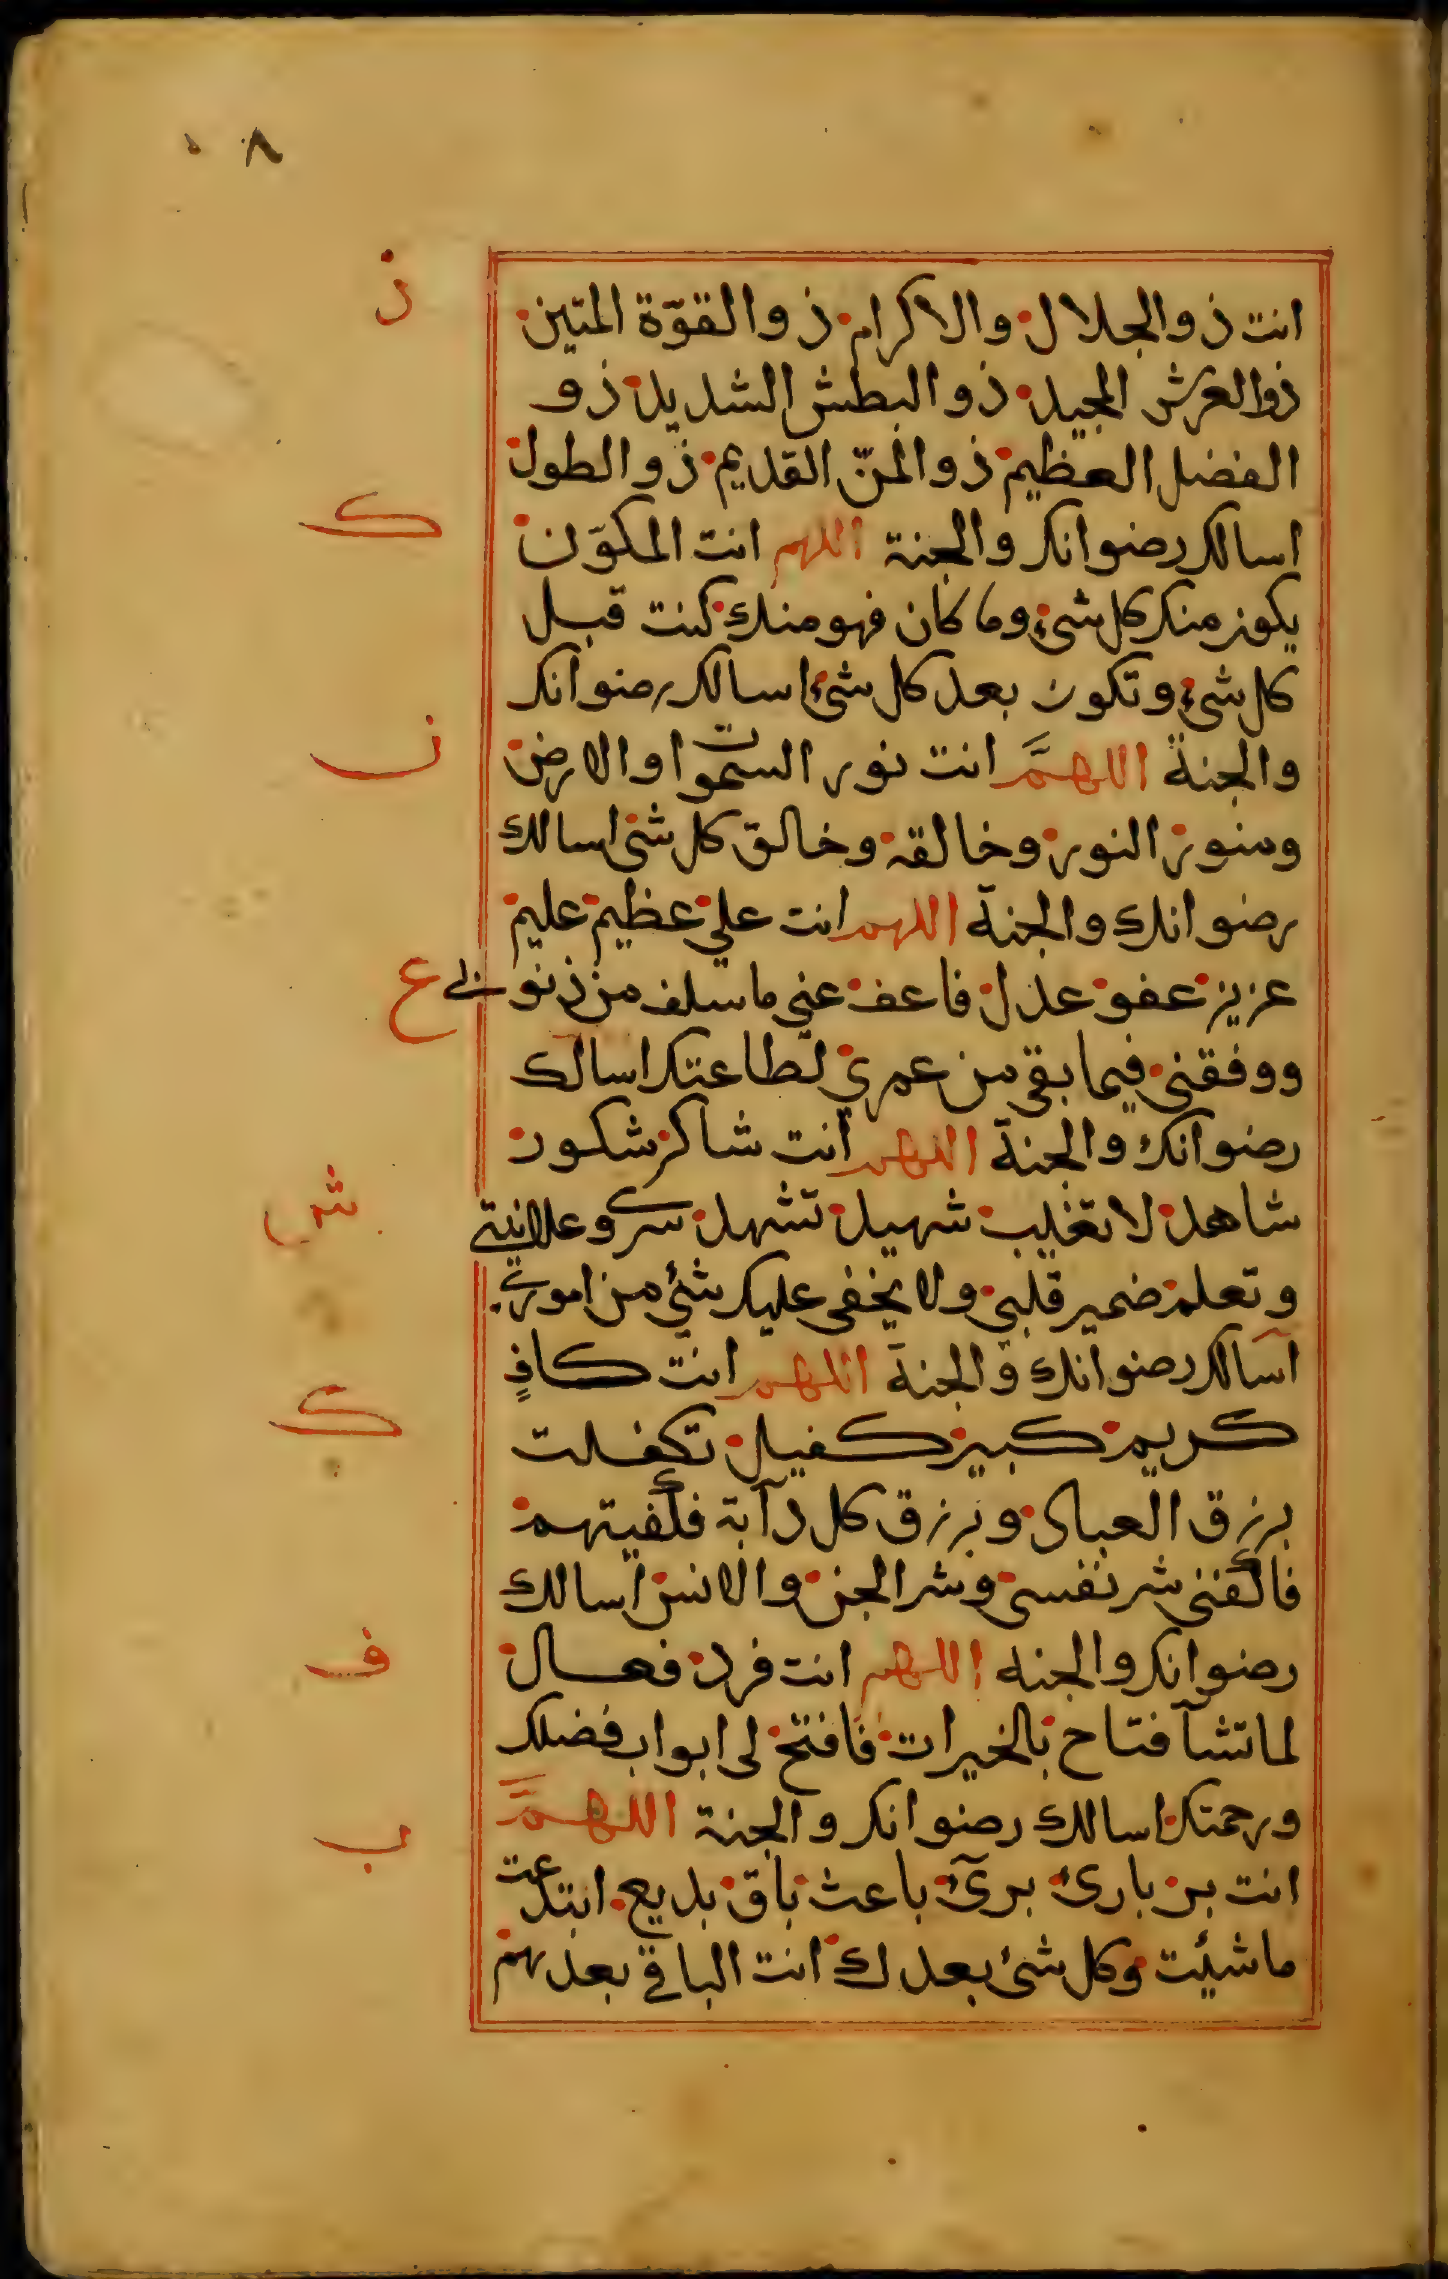 ٨
ذ
انت ذو الجلال والاكرام ذو القوّة المتين
ذو العرش المجيد ذو البطش الشديد ذو
الفضل العظيم ذو المنّ القديم ذو الطول
ك
اسالك رضوانك والجنة اللهم انت المكوّن
يكون منك كل شئ وما كان فهو منك كنت قبل
كل شئ وتكون بعد كل شئ اسالك رضوانك
ن
والجنة اللهمَّ انت نور السموات والارض
ومنور النور وخالقه وخالق كل شئ اسالك
رضوانك والجنة اللهم انت علي عظيم عليم
ع
عزيز عفو عدل فاعف عني ما سلف من ذنوبي
ووفقني فيما بقي من عمري لطاعتك اسالك
رضوانك والجنة اللهم انت شاكر شكور
ش
شاهد لا تغيب شهيد تشهد سري وعلانيتي
وتعلم ضمير قلبي ولا يخفى عليك شئ من اموري
اسالك رضوانك والجنة اللهم انت كافٍ
ك
كريم كبير كفيل تكفلت
برزق العباد وبرزق كل دآبة فكفيتهم
فاكفني شر نفسي وشر الجن والانس اسالك
ف
رضوانك والجنة اللهم انت فرد فعال
لما تشآ فتاح بالخيرات فافتح لى ابواب فضلك
ورحمتك اسالك رضوانك والجنة اللهمَّ
ب
انت بر بارئ برئ باعث باق بديع ابتدعت
ما شئت وكل شئ بعدك انت الباقي بعدهم